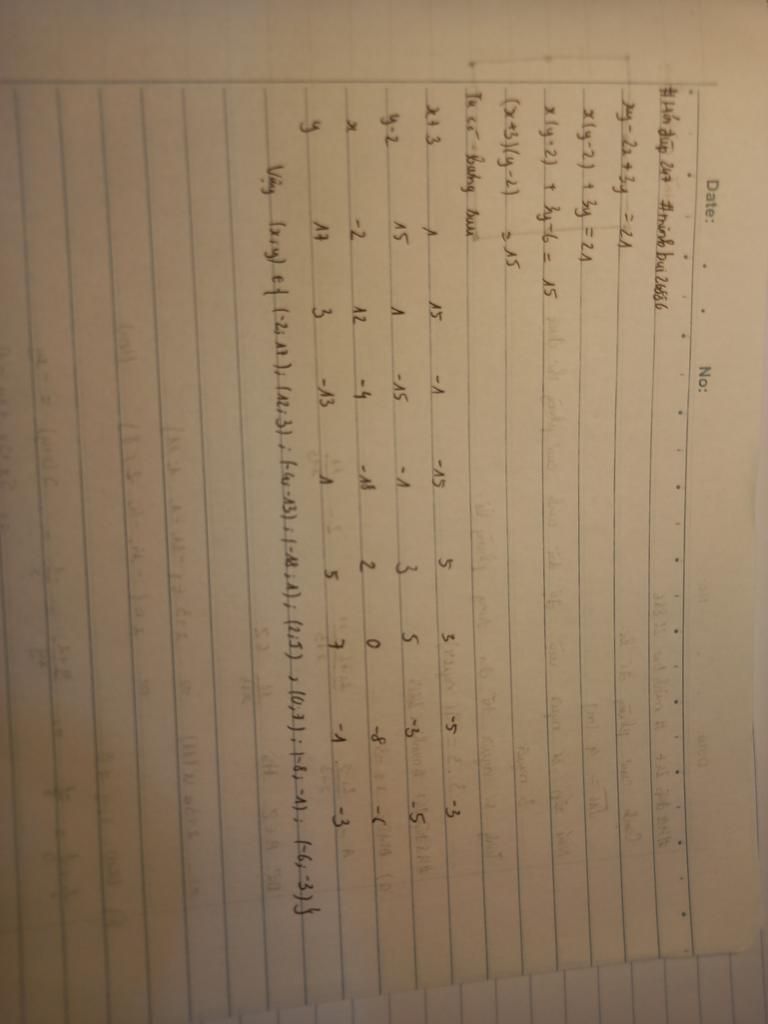 Date: No:
#Hỏi đáp 247 #minhbui26586
xy - 2x + 3y = 21
x(y-2) + 3y = 21
x(y-2) + 3y-6 = 15
(x+3)(y-2) = 15
Ta có bảng sau
x+3 1 15 -1 -15 5 3 -5 -3
y-2 15 1 -15 -1 3 5 -3 -5
x -2 12 -4 -18 2 0 -8 -6
y 17 3 -13 1 5 7 -1 -3
Vậy (x,y) ∈ { (-2,17); (12,3); (-4,-13); (-18,1); (2,5), (0,7); (-8,-1); (-6,-3)}